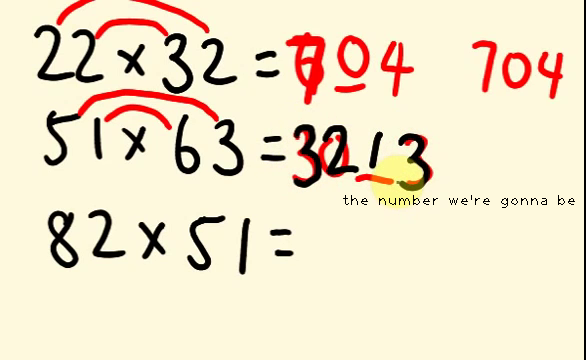 22 × 32 = 704 704
51 × 63 = 3213
the number we're gonna be
82 × 51 =